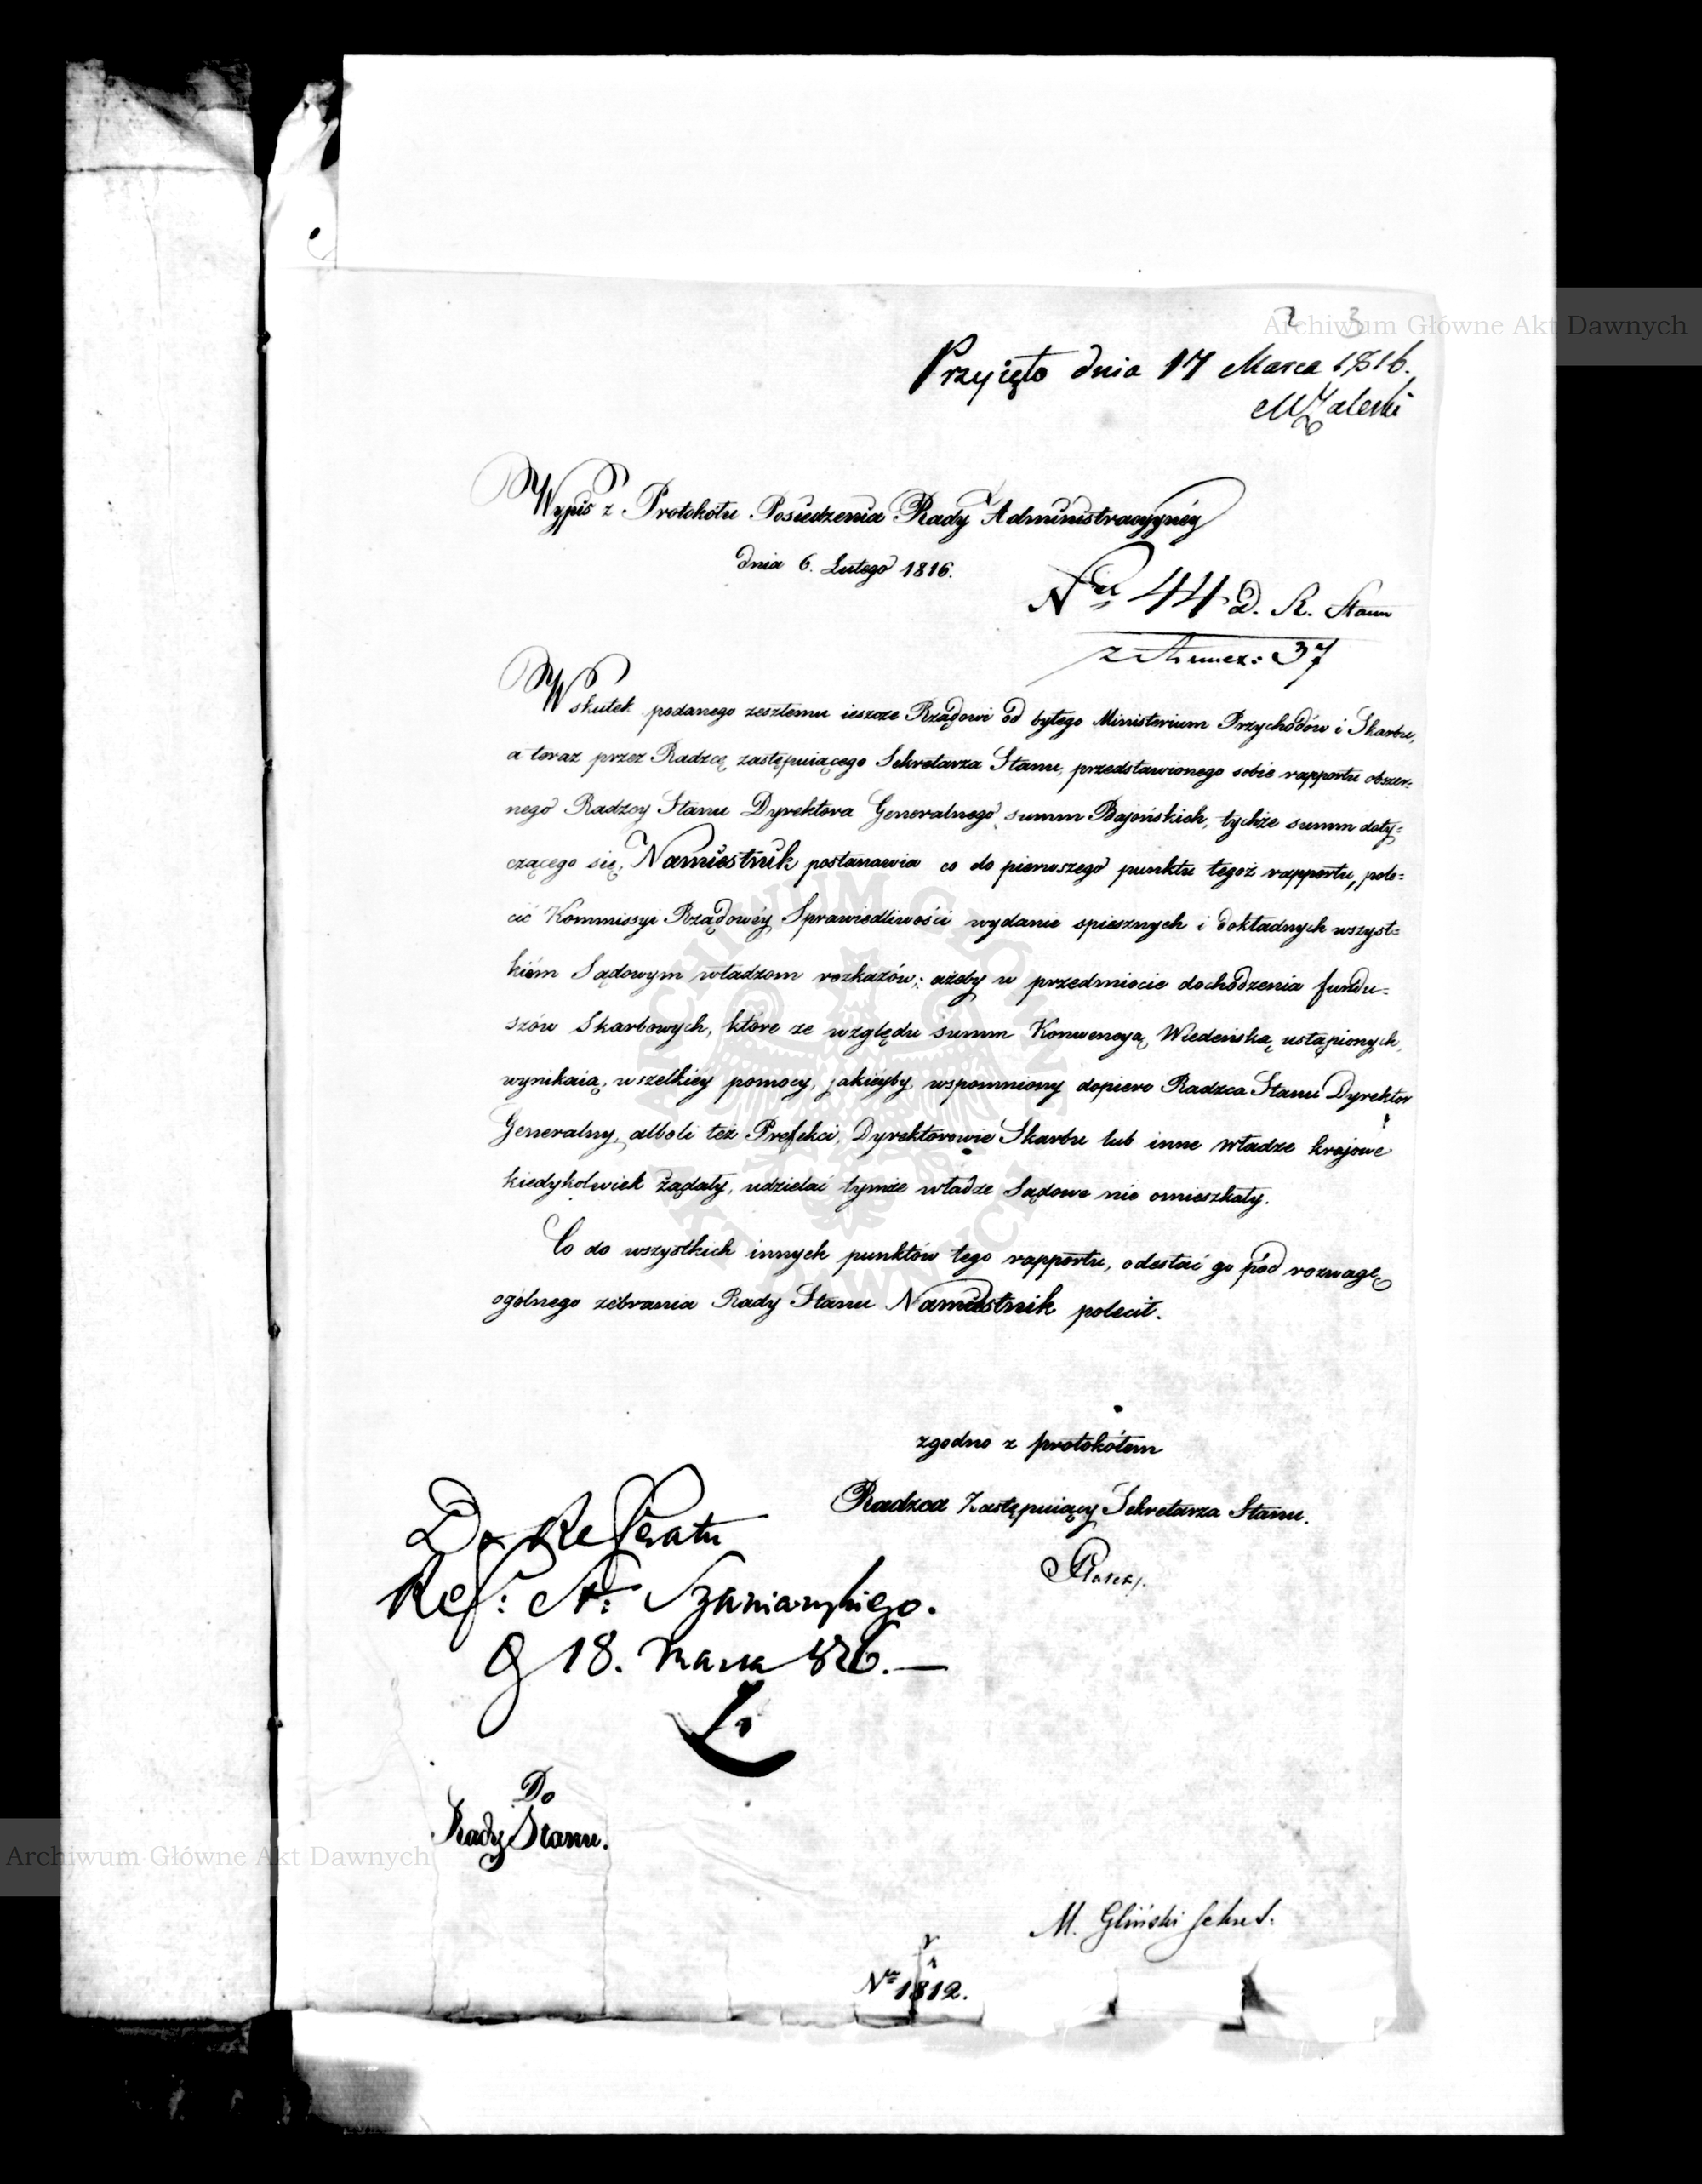 2 3
Przyięto dnia 17 Marca 1816.
MZaleski
Wypis z Protokółu Posiedzenia Rady Administracyynéy
dnia 6. Lutego 1816.
Nr 44 D. R. Stanu
z Annex: 37
W skutek podanego zeszłemu ieszcze Rządowi od byłego Ministerium Przychodów i Skarbu,
a teraz przez Radzcę zastępuiącego Sekretarza Stanu, przedstawionego sobie rapportu obszer=
nego Radzcy Stanu Dyrektora Generalnego summ Bajońskich, tychże summ doty=
czącego się, Namiestnik postanawia co do pierwszego punktu tegoż rapportu, pole=
cić Kommissyi Rządowéy Sprawiedliwości wydanie spiesznych i dokładnych wszyst=
kiém Sądowym władzom rozkazów; ażeby w przedmiocie dochodzenia fundu=
szów Skarbowych, które ze względu summ Konwencyą Wiedeńską ustąpionych,
wynikaią, wszelkiey pomocy, jakiéyby wspomniony dopiero Radzca Stanu Dyrektor
Generalny, alboli téż Prefekci, Dyrektorowie Skarbu lub inne władze krajowe
kiedykolwiek żądały, udzielać tymże władze Sądowe nie omieszkały.
Co do wszystkich innych punktów tego rapportu, odesłać go pod rozwagę
ogólnego zebrania Rady Stanu Namiestnik polecił.
zgodno z protokółem
Radzca Zastępuiący Sekretarza Stanu.
Do Referatu
Ref: St: Szaniawskiego.
18. Marca 816.—
Do
Rady Stanu.
M. Gliński Sekret.
Nr 1812.
Archiwum Główne Akt Dawnych
Archiwum Główne Akt Dawnych
ARCHIWUM GŁÓWNE
AKT DAWNYCH